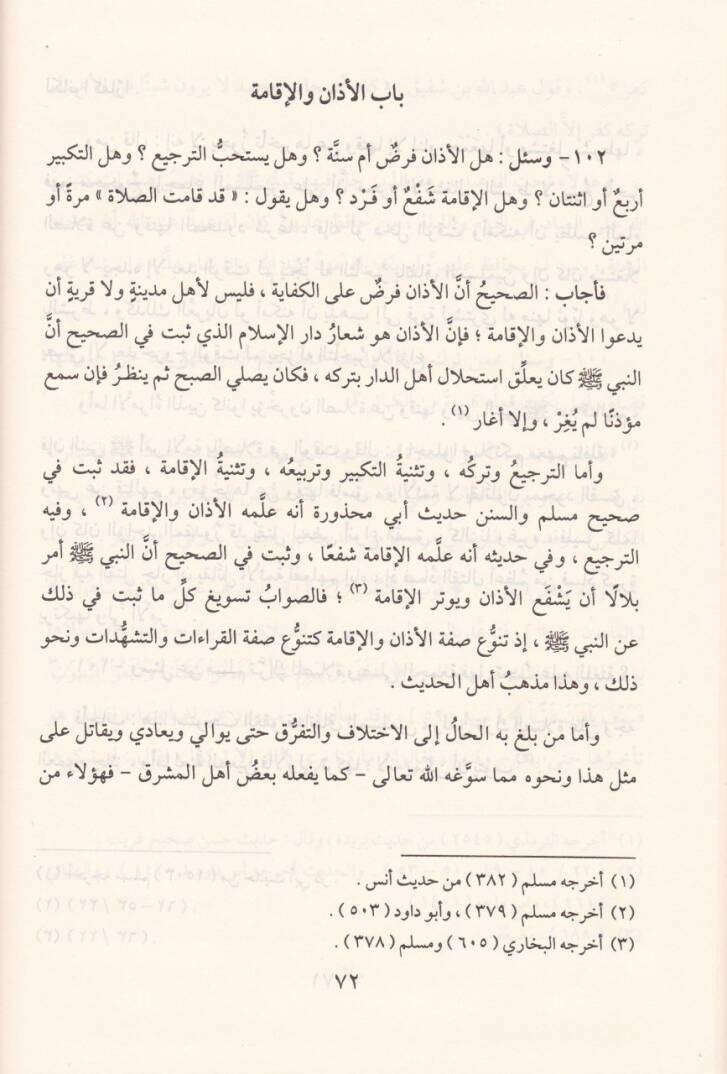 باب الأذان والإقامة
١٠٢- وسئل : هل الأذان فرضٌ أم سنَّة ؟ وهل يستحبُّ الترجيع ؟ وهل التكبير
أربعٌ أو اثنتان ؟ وهل الإقامة شَفْعٌ أو فَرْد ؟ وهل يقول : « قد قامت الصلاة » مرةً أو
مرتين ؟
فأجاب : الصحيحُ أنَّ الأذان فرضٌ على الكفاية ، فليس لأهل مدينةٍ ولا قريةٍ أن
يدعوا الأذان والإقامة ؛ فإنَّ الأذان هو شعارُ دار الإسلام الذي ثبت في الصحيح أنَّ
النبي ﷺ كان يعلِّق استحلال أهل الدار بتركه ، فكان يصلي الصبح ثم ينظرُ فإن سمع
مؤذنًا لم يُغِرْ ، وإلا أغار (١) .
وأما الترجيعُ وتركُه ، وتثنيةُ التكبير وتربيعُه ، وتثنيةُ الإقامة ، فقد ثبت في
صحيح مسلم والسنن حديث أبي محذورة أنه علَّمه الأذان والإقامة (٢) ، وفيه
الترجيع ، وفي حديثه أنه علَّمه الإقامة شفعًا ، وثبت في الصحيح أنَّ النبي ﷺ أمر
بلالًا أن يَشْفَع الأذان ويوتر الإقامة (٣) ؛ فالصوابُ تسويغ كلِّ ما ثبت في ذلك
عن النبي ﷺ ، إذ تنوُّع صفة الأذان والإقامة كتنوُّع صفة القراءات والتشهُّدات ونحو
ذلك ، وهذا مذهبُ أهل الحديث .
وأما من بلغ به الحالُ إلى الاختلاف والتفرُّق حتى يوالي ويعادي ويقاتل على
مثل هذا ونحوه مما سوَّغه الله تعالى – كما يفعله بعضُ أهل المشرق – فهؤلاء من
(١) أخرجه مسلم ( ٣٨٢ ) من حديث أنس .
(٢) أخرجه مسلم ( ٣٧٩ ) ، وأبو داود ( ٥٠٣ ) .
(٣) أخرجه البخاري ( ٦٠٥ ) ومسلم ( ٣٧٨ ) .
٧٢